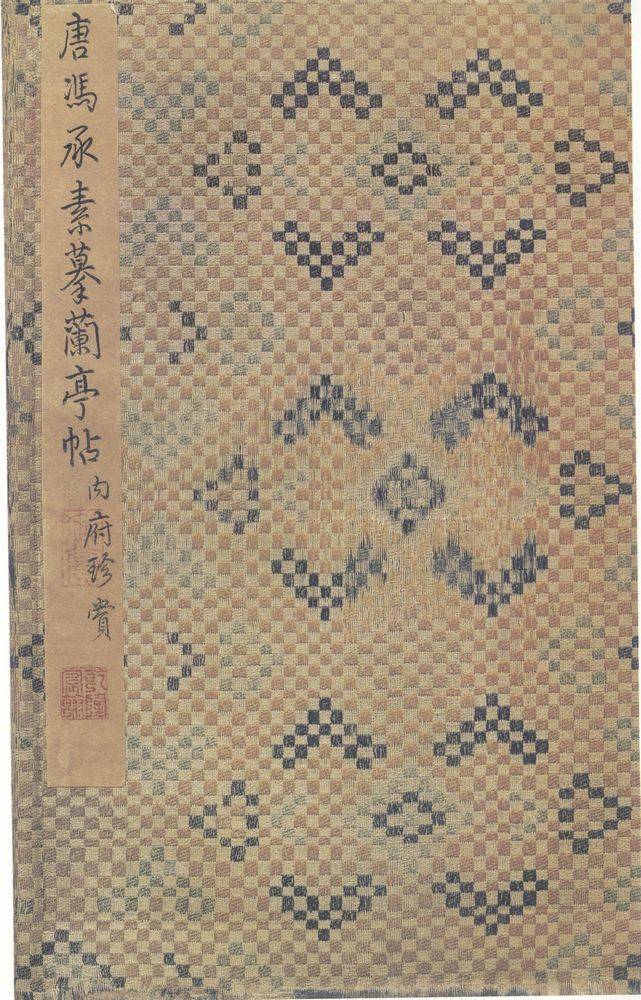 唐馮承素摹蘭亭帖
内府珍賞
乾隆宸翰